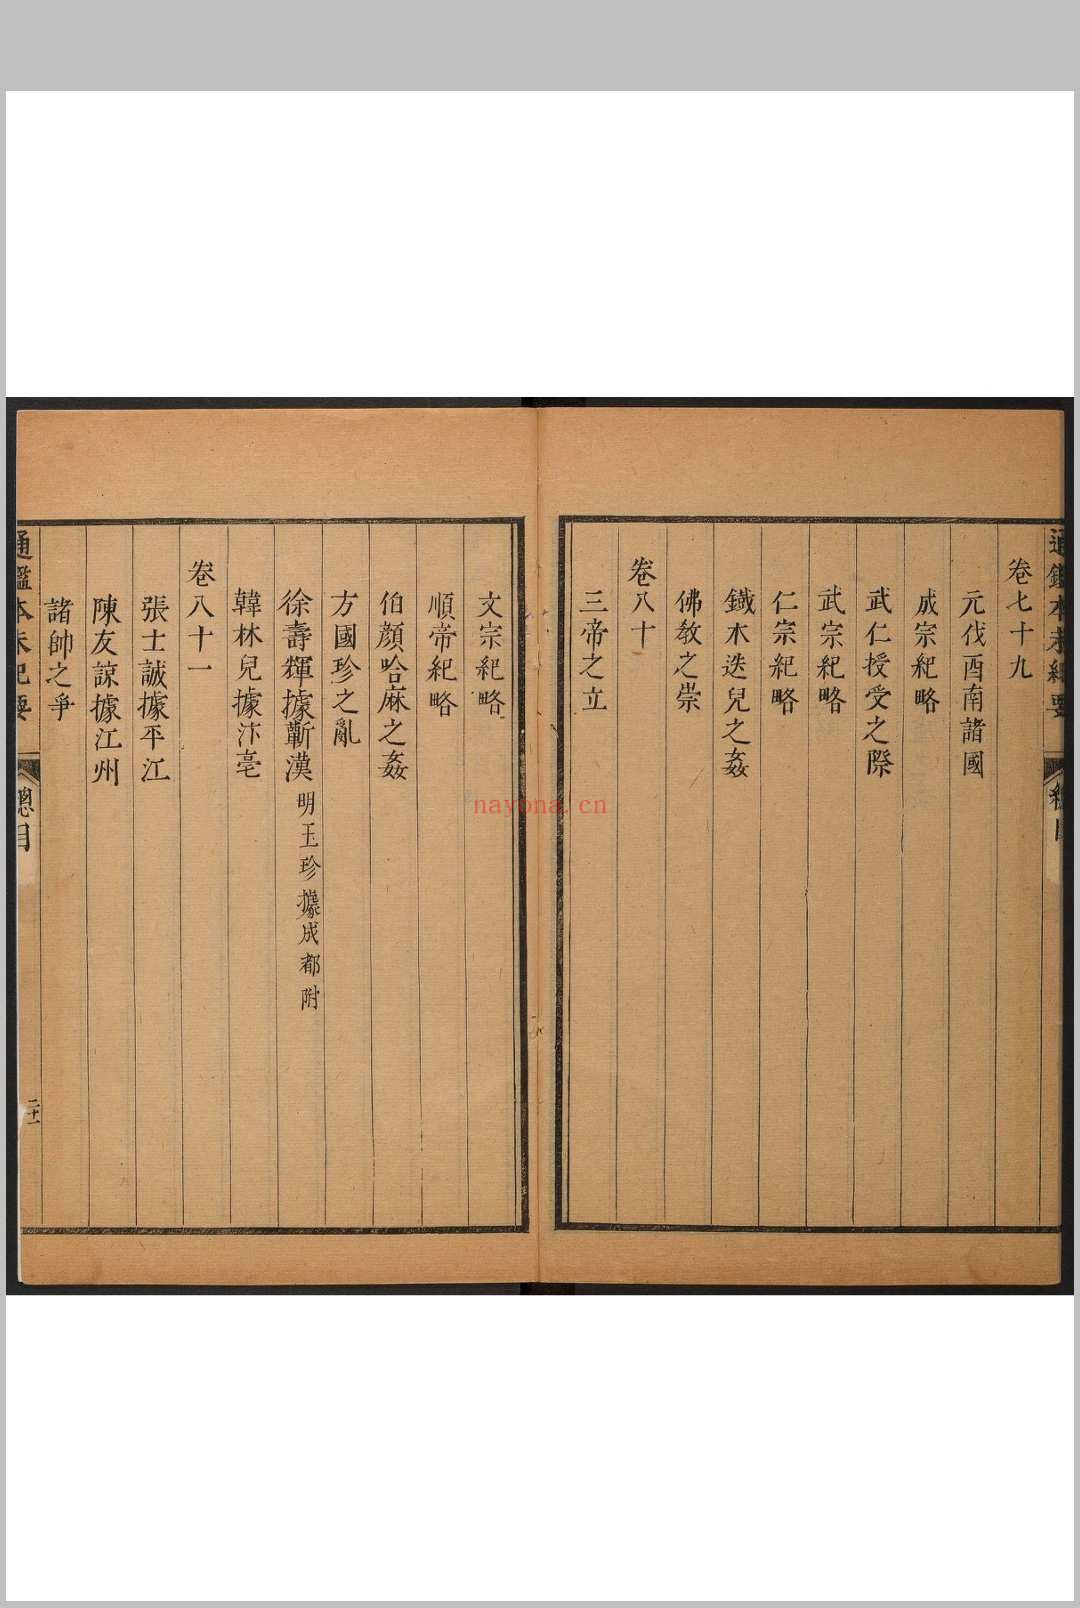 卷七十九
元伐西南諸國
成宗紀略
武仁授受之際
武宗紀略
仁宗紀略
鐵木迭兒之姦
佛教之崇
卷八十
三帝之立
文宗紀略
順帝紀略
伯顏哈麻之姦
方國珍之亂
徐壽輝據蘄漢 明玉珍據成都附
韓林兒據汴亳
卷八十一
張士誠據平江
陳友諒據江州
諸帥之爭
通鑑本末紀要 總目 二十一
nayona.cn